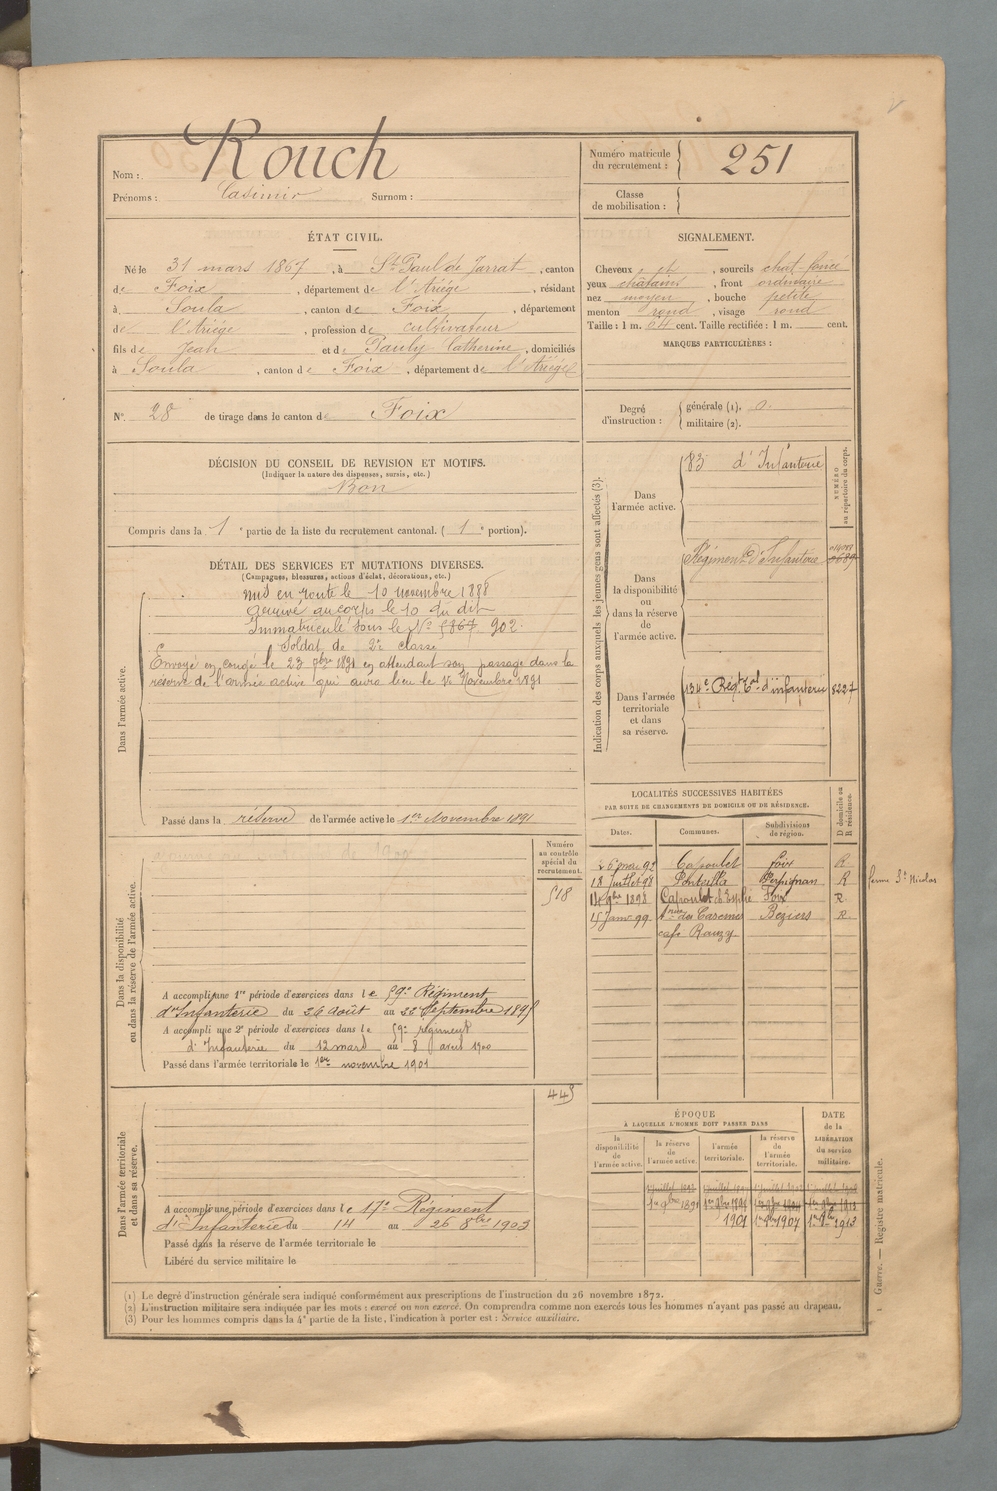 Nom : Rouch
Prénoms : Casimir Surnom :
Numéro matricule du recrutement : 251
Classe de mobilisation :
ÉTAT CIVIL.
Né le 31 mars 1867, à St Paul de Jarrat, canton
de Foix, département de l'Ariége, résidant
à Soula, canton de Foix, département
de l'Ariége, profession de cultivateur
fils de Jean et de Pauly Catherine, domiciliés
à Soula, canton de Foix, département de l'Ariége
N° 28 de tirage dans le canton de Foix
SIGNALEMENT.
Cheveux et, sourcils chat-foncé
yeux chatains, front ordinaire
nez moyen, bouche petite
menton rond, visage rond
Taille : 1 m. 64 cent. Taille rectifiée : 1 m. cent.
MARQUES PARTICULIÈRES :
Degré d'instruction : générale (1). 0.
militaire (2).
DÉCISION DU CONSEIL DE REVISION ET MOTIFS.
(Indiquer la nature des dispenses, sursis, etc.)
Bon
Compris dans la 1e partie de la liste du recrutement cantonal. ( 1e portion).
DÉTAIL DES SERVICES ET MUTATIONS DIVERSES.
(Campagnes, blessures, actions d'éclat, décorations, etc.)
Dans l'armée active.
mis en route le 10 novembre 1888
arrivé au corps le 10 du dit
Immatriculé sous le N° 5867. 902.
Soldat de 2e classe
Envoyé en congé le 23 7bre 1891 en attendant son passage dans la
réserve de l'armée active qui aura lieu le 1er Novembre 1891
Passé dans la réserve de l'armée active le 1er Novembre 1891
Indication des corps auxquels les jeunes gens sont affectés (3).
NUMÉRO au répertoire du corps.
Dans l'armée active.
83e d'Infanterie
Dans la disponibilité ou dans la réserve de l'armée active.
Régiment d'Infanterie
Dans l'armée territoriale et dans sa réserve.
134e Régt tal d'infanterie 8227
LOCALITÉS SUCCESSIVES HABITÉES
PAR SUITE DE CHANGEMENTS DE DOMICILE OU DE RÉSIDENCE.
Dates. Communes. Subdivisions de région. D domicile ou R résidence.
26 mai 92 Capoulet Foix R
18 Juillet 98 Perpignan R ferme St Nicolas
14 9bre 1898 Capoulet Foix R
15 Janv 99 Béziers R
café Rouzy
Dans la disponibilité ou dans la réserve de l'armée active.
Numéro au contrôle spécial du recrutement.
518
A accompli une 1re période d'exercices dans le 59e Régiment
d'Infanterie du 26 août au 22 Septembre 1895
A accompli une 2e période d'exercices dans le 59e régiment
d'Infanterie du 12 mars au 8 avril 1900
Passé dans l'armée territoriale le 1er novembre 1901
445
Dans l'armée territoriale et dans sa réserve.
A accompli une période d'exercices dans le 17e Régiment
d'Infanterie du 14 au 26 8bre 1903
Passé dans la réserve de l'armée territoriale le
Libéré du service militaire le
ÉPOQUE
À LAQUELLE L'HOMME DOIT PASSER DANS
DATE de la LIBÉRATION du service militaire.
la disponibilité de l'armée active. la réserve de l'armée active. l'armée territoriale. la réserve de l'armée territoriale.
1er 9bre 1891
1901 1er 9bre 1907 1er 8bre 1913
1 Guerre. — Registre matricule.
(1) Le degré d'instruction générale sera indiqué conformément aux prescriptions de l'instruction du 26 novembre 1872.
(2) L'instruction militaire sera indiquée par les mots : exercé ou non exercé. On comprendra comme non exercés tous les hommes n'ayant pas passé au drapeau.
(3) Pour les hommes compris dans la 4e partie de la liste, l'indication à porter est : Service auxiliaire.